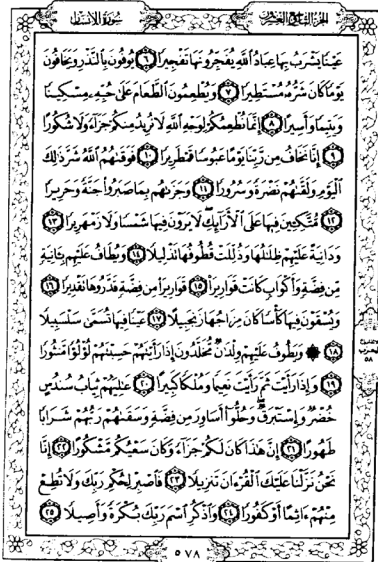 الجزء التاسع والعشرون
سورة الإنسان
عَيْنًا يَشْرَبُ بِهَا عِبَادُ اللَّهِ يُفَجِّرُونَهَا تَفْجِيرًا ٦ يُوفُونَ بِالنَّذْرِ وَيَخَافُونَ
يَوْمًا كَانَ شَرُّهُ مُسْتَطِيرًا ٧ وَيُطْعِمُونَ الطَّعَامَ عَلَىٰ حُبِّهِ مِسْكِينًا
وَيَتِيمًا وَأَسِيرًا ٨ إِنَّمَا نُطْعِمُكُمْ لِوَجْهِ اللَّهِ لَا نُرِيدُ مِنكُمْ جَزَاءً وَلَا شُكُورًا
٩ إِنَّا نَخَافُ مِن رَّبِّنَا يَوْمًا عَبُوسًا قَمْطَرِيرًا ١٠ فَوَقَىٰهُمُ اللَّهُ شَرَّ ذَٰلِكَ
الْيَوْمِ وَلَقَّىٰهُمْ نَضْرَةً وَسُرُورًا ١١ وَجَزَىٰهُم بِمَا صَبَرُوا جَنَّةً وَحَرِيرًا
١٢ مُّتَّكِـِٔينَ فِيهَا عَلَى الْأَرَائِكِ لَا يَرَوْنَ فِيهَا شَمْسًا وَلَا زَمْهَرِيرًا ١٣
وَدَانِيَةً عَلَيْهِمْ ظِلَٰلُهَا وَذُلِّلَتْ قُطُوفُهَا تَذْلِيلًا ١٤ وَيُطَافُ عَلَيْهِم بِـَٔانِيَةٍ
مِّن فِضَّةٍ وَأَكْوَابٍ كَانَتْ قَوَارِيرًا ١٥ قَوَارِيرًا مِن فِضَّةٍ قَدَّرُوهَا تَقْدِيرًا ١٦
وَيُسْقَوْنَ فِيهَا كَأْسًا كَانَ مِزَاجُهَا زَنجَبِيلًا ١٧ عَيْنًا فِيهَا تُسَمَّىٰ سَلْسَبِيلًا
١٨ وَيَطُوفُ عَلَيْهِمْ وِلْدَٰنٌ مُّخَلَّدُونَ إِذَا رَأَيْتَهُمْ حَسِبْتَهُمْ لُؤْلُؤًا مَّنثُورًا
١٩ وَإِذَا رَأَيْتَ ثَمَّ رَأَيْتَ نَعِيمًا وَمُلْكًا كَبِيرًا ٢٠ عَٰلِيهِمْ ثِيَابُ سُندُسٍ
خُضْرٌ وَإِسْتَبْرَقٌ وَحُلُّوا أَسَاوِرَ مِن فِضَّةٍ وَسَقَىٰهُمْ رَبُّهُمْ شَرَابًا
طَهُورًا ٢١ إِنَّ هَٰذَا كَانَ لَكُمْ جَزَاءً وَكَانَ سَعْيُكُم مَّشْكُورًا ٢٢ إِنَّا
نَحْنُ نَزَّلْنَا عَلَيْكَ الْقُرْءَانَ تَنزِيلًا ٢٣ فَاصْبِرْ لِحُكْمِ رَبِّكَ وَلَا تُطِعْ
مِنْهُمْ ءَاثِمًا أَوْ كَفُورًا ٢٤ وَاذْكُرِ اسْمَ رَبِّكَ بُكْرَةً وَأَصِيلًا ٢٥
٥٧٨